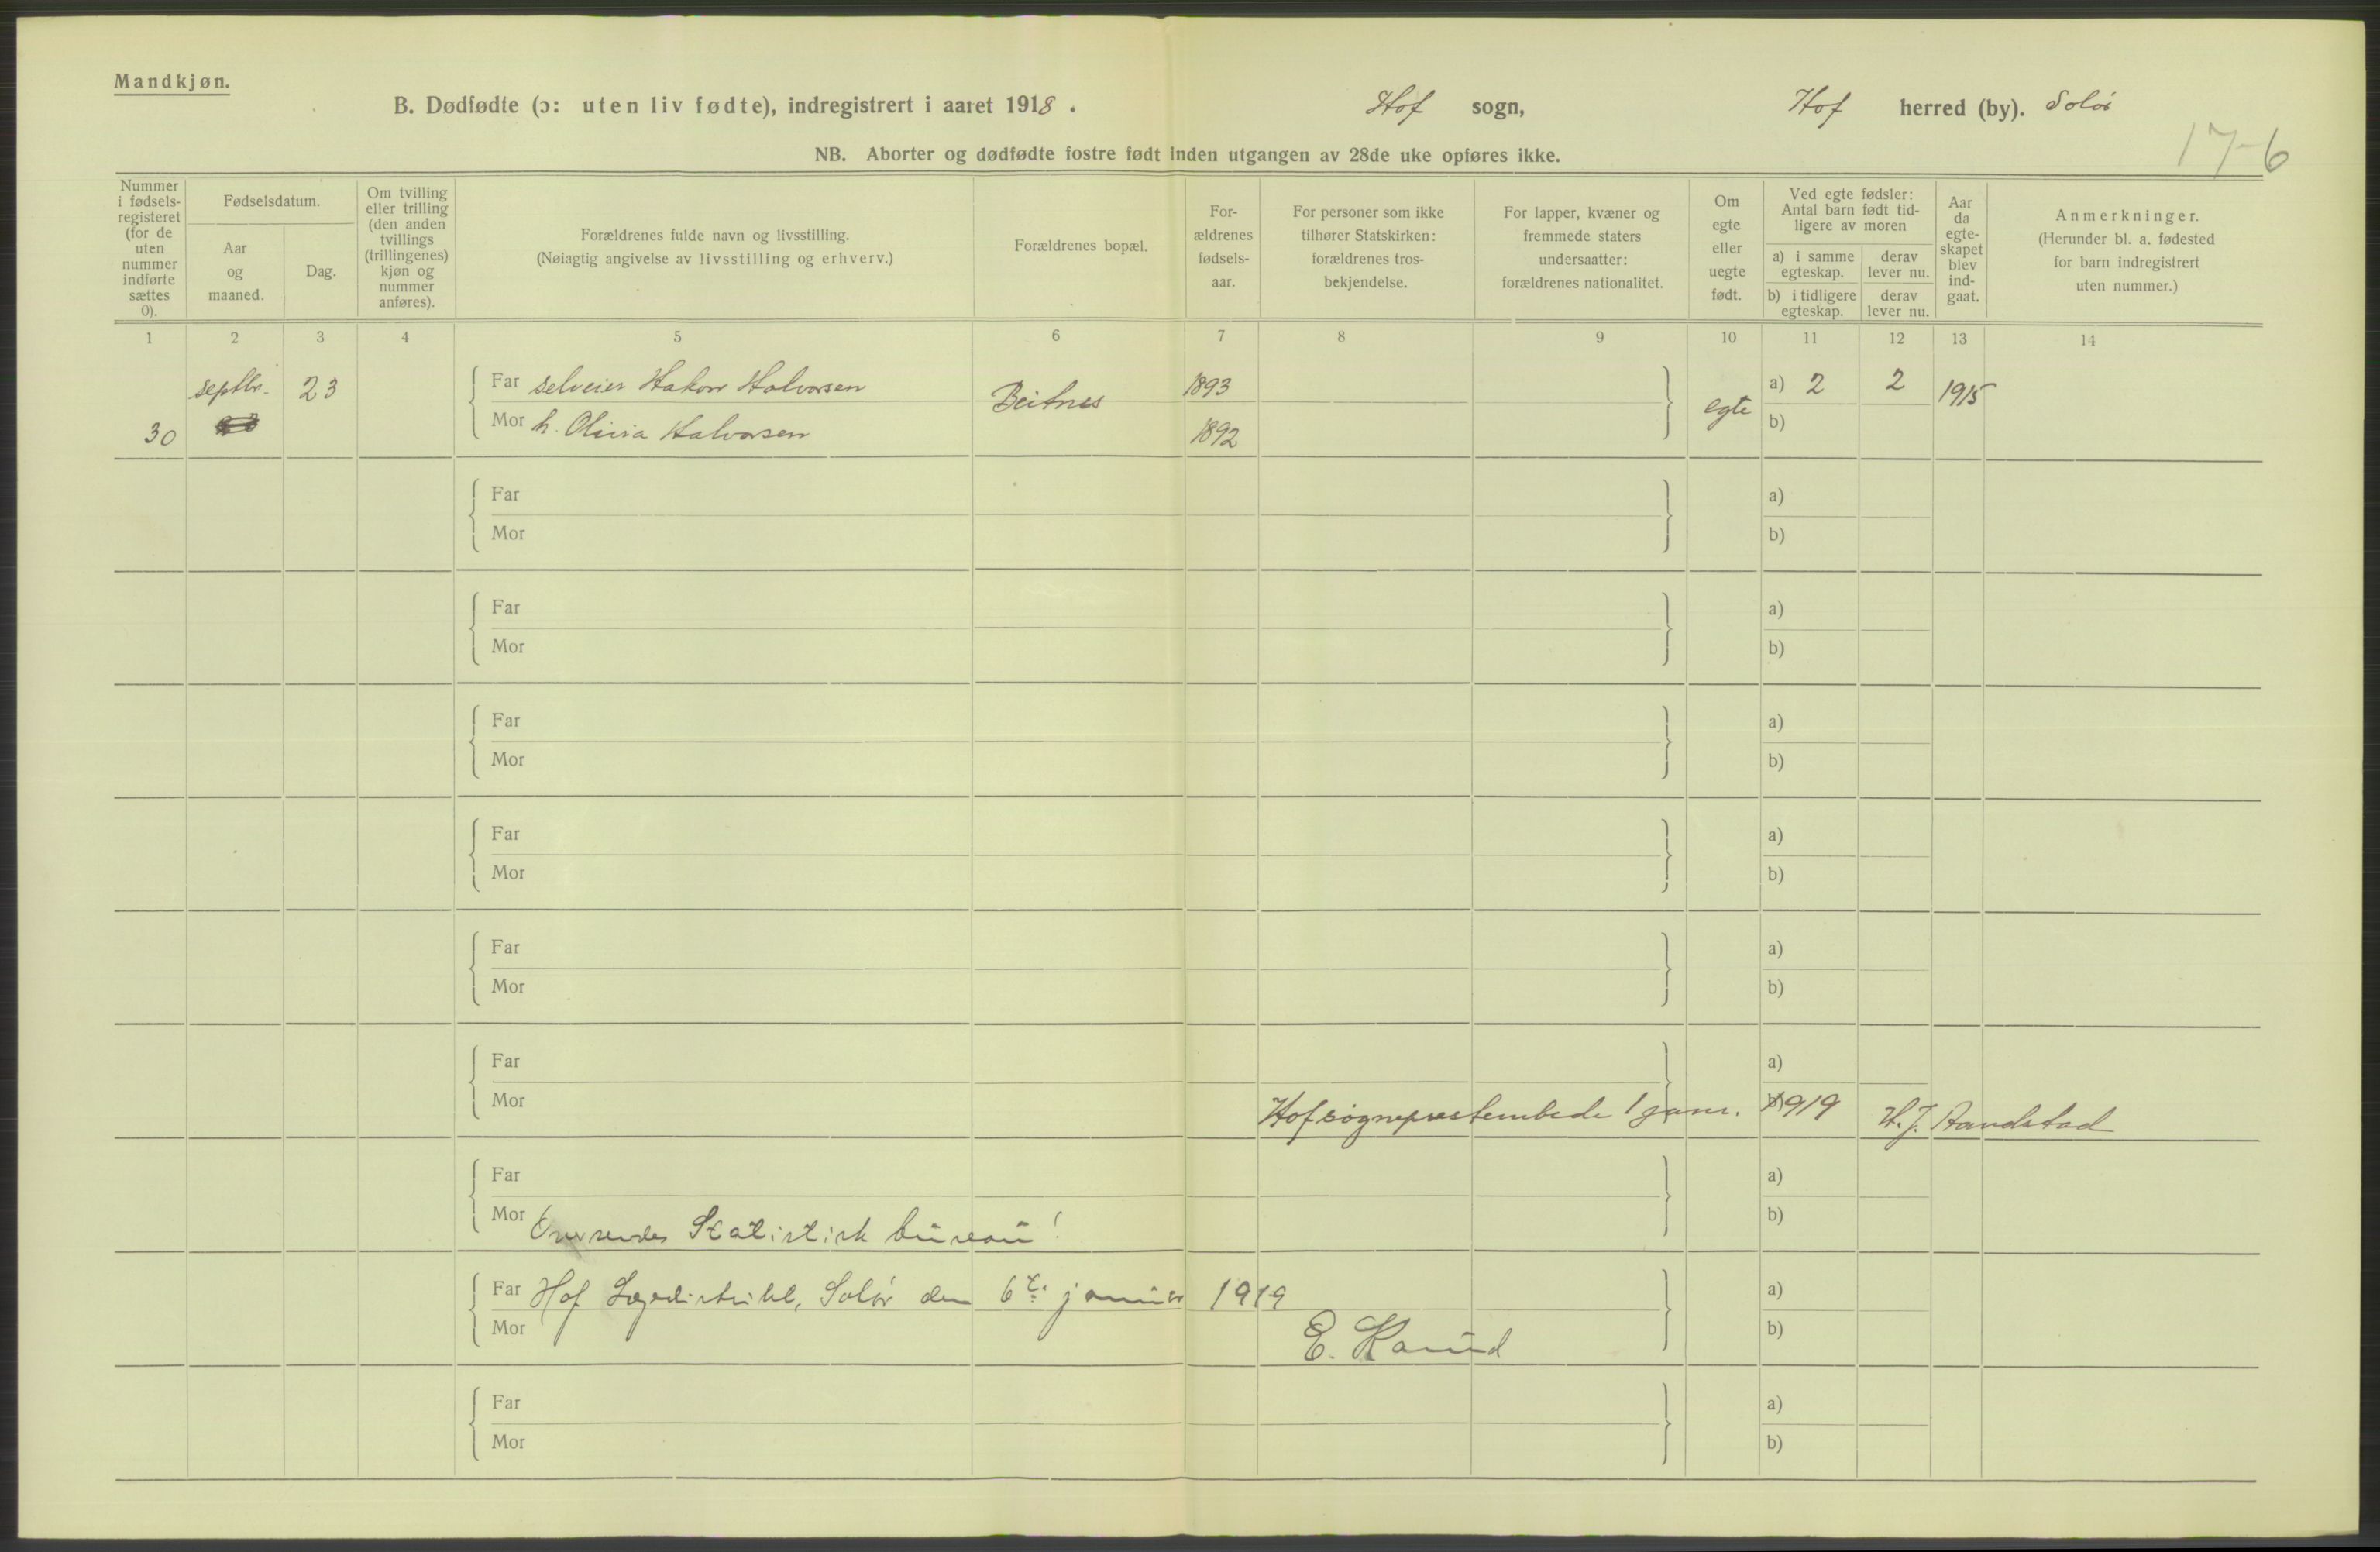 Mandkjøn.
B. Dødfødte (ɔ: uten liv fødte), indregistrert i aaret 1918. Hof sogn, Hof herred (by). Solør
17-6
NB. Aborter og dødfødte fostre født inden utgangen av 28de uke opføres ikke.
Nummer
i fødsels-
registeret
(for de
uten
nummer
indførte
sættes
0).
Fødselsdatum.
Aar
og
maaned.
Dag.
Om tvilling
eller trilling
(den anden
tvillings
(trillingenes)
kjøn og
nummer
anføres).
Forældrenes fulde navn og livsstilling.
(Nøiagtig angivelse av livsstilling og erhverv.)
Forældrenes bopæl.
For-
ældrenes
fødsels-
aar.
For personer som ikke
tilhører Statskirken:
forældrenes tros-
bekjendelse.
For lapper, kvæner og
fremmede staters
undersaatter:
forældrenes nationalitet.
Om
egte
eller
uegte
født.
Ved egte fødsler:
Antal barn født tid-
ligere av moren
a) i samme
egteskap.
derav
lever nu.
b) i tidligere
egteskap.
derav
lever nu.
Aar
da
egte-
skapet
blev
ind-
gaat.
Anmerkninger.
(Herunder bl. a. fødested
for barn indregistrert
uten nummer.)
1 2 3 4 5 6 7 8 9 10 11 12 13 14
septbr. 23 Far selveier Hakon Halvorsen Beitnes 1893 egte a) 2 2 1915
30 Mor h. Olivia Halvorsen 1892 b)
Far a)
Mor b)
Far a)
Mor b)
Far a)
Mor b)
Far a)
Mor b)
Far a)
Mor b)
Far a)
Mor Hof sogneprestembede 1 janr. 1919 H. J. Randstad
Far a)
Mor Oversendes Statistisk bureau! b)
Far Hof Lægedistrikt, Solør den 6te januar 1919 a)
Mor E. b)
Far a)
Mor b)